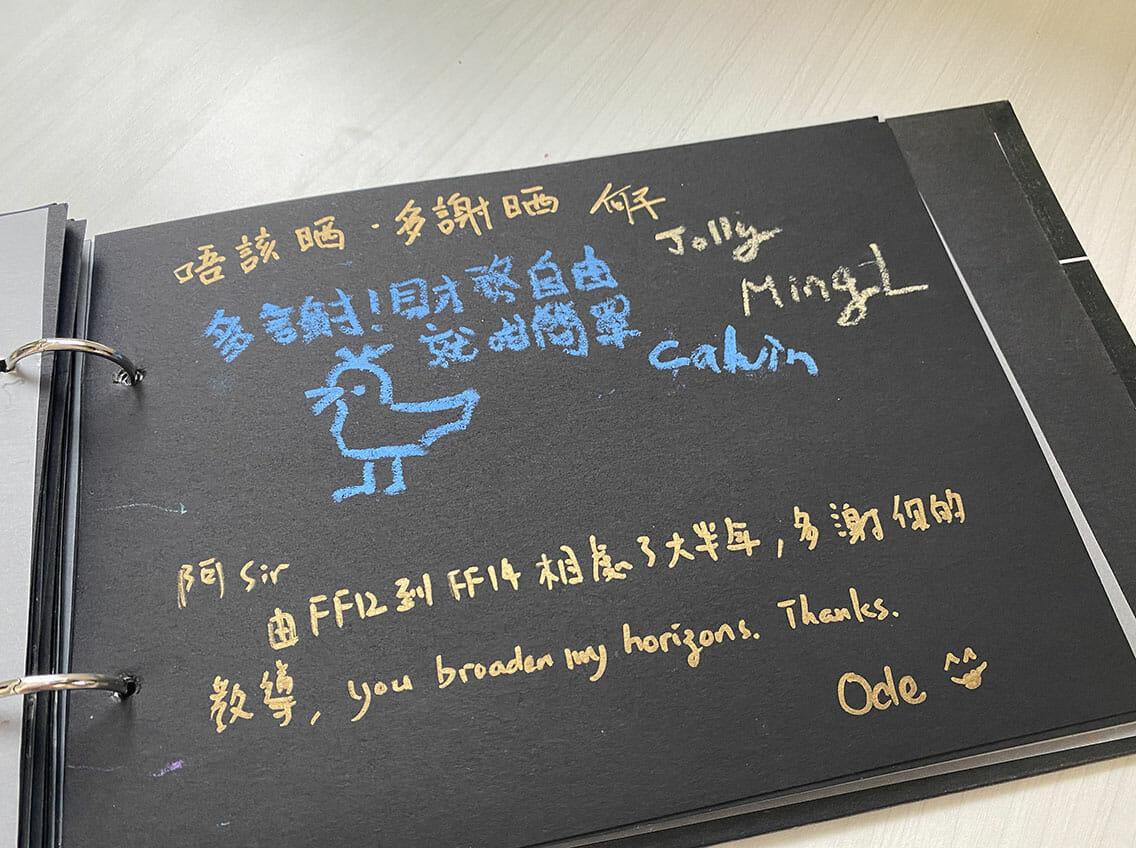 唔該晒．多謝晒
Jolly
Ming.L
多謝！財務自由
就咁簡單
Calvin
阿 Sir
由FF12到FF14相處了大半年，多謝你的
教導，you broaden my horizons. Thanks.
Ode